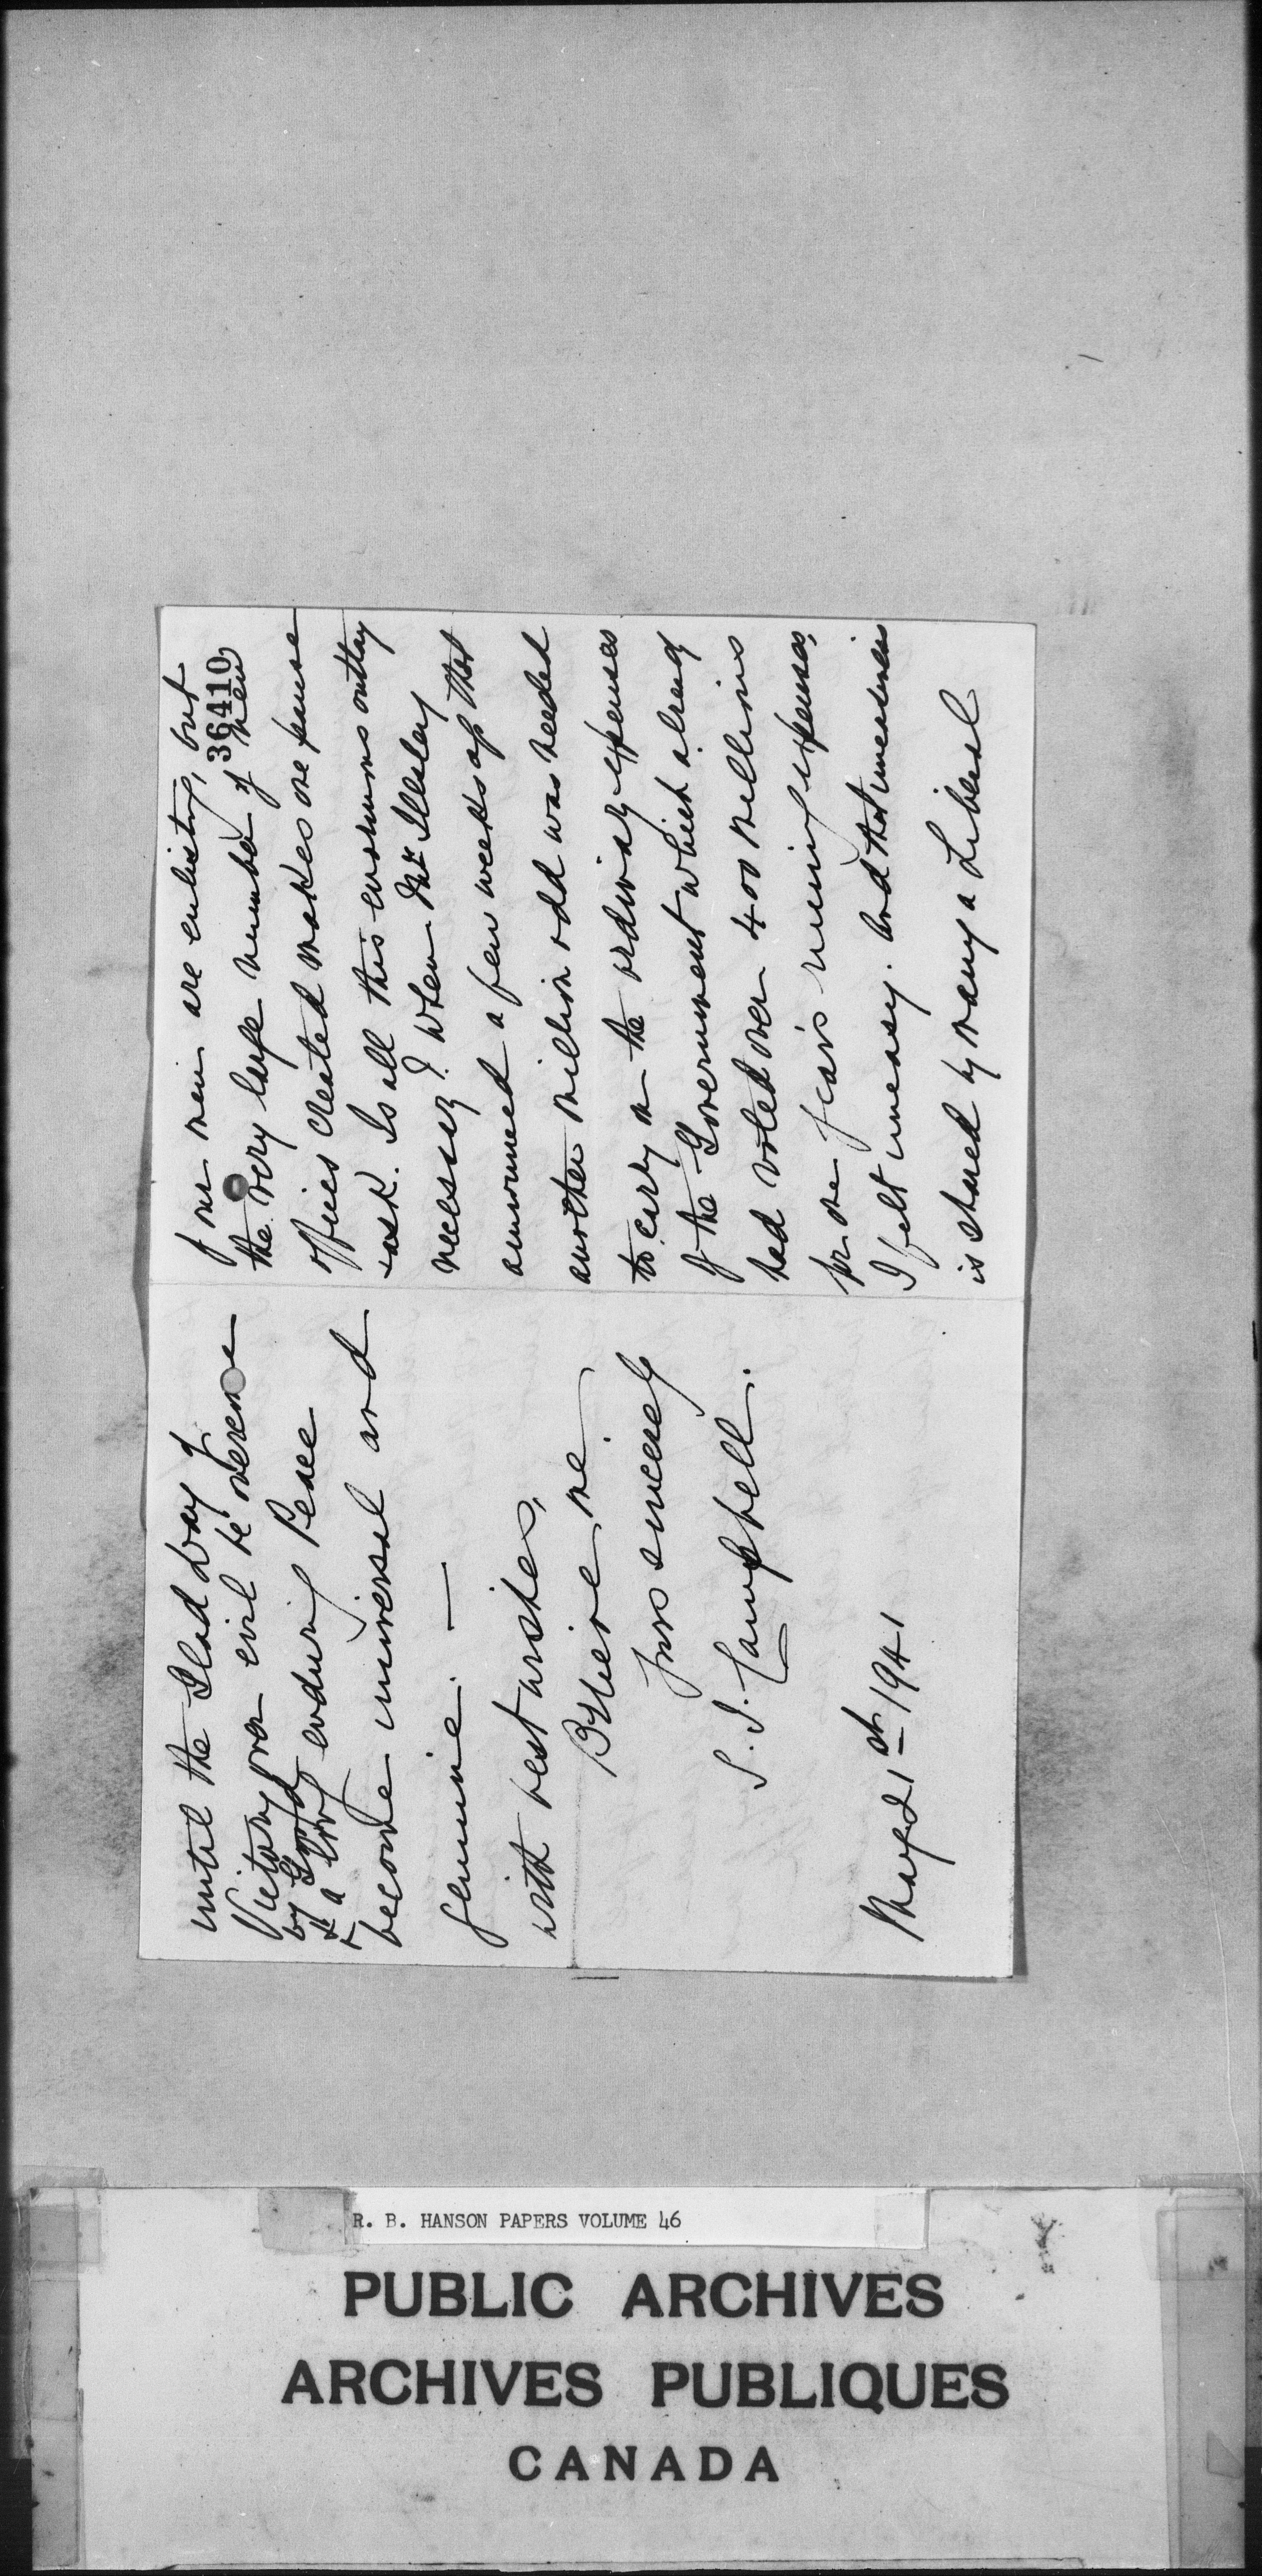 until the Glad Day of
Victory over evil be overcome
by Good
& a long enduring Peace
become universal and
genuine. —
with best wishes,
Believe me.
Yours sincerely
S. J. Campbell.
May 21st 1941
of our men are enlisting, but
36410
the very large number of new
offices created makes one pause
& ask. Is all this enormous outlay
necessary? When Mr. Illsley
announced a few weeks ago that
another million odd was needed
to carry on the ordinary expenses
of the Government which already
had voted over 400 Millions
for one year's running expenses,
I felt uneasy. And that uneasiness
is shared by many a Liberal
R. B. HANSON PAPERS VOLUME 46
PUBLIC ARCHIVES
ARCHIVES PUBLIQUES
CANADA